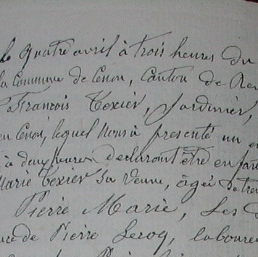 le quatre avril à trois heures du
la Commune de Cenon, Canton de
François Texier, Jardinier,
en Cenon, lequel nous a présenté un en
à deux heures déclarant être en
Marie Texier sa venue, âgée de tre
Pierre Marie, Les
de Pierre Leroq, laboure